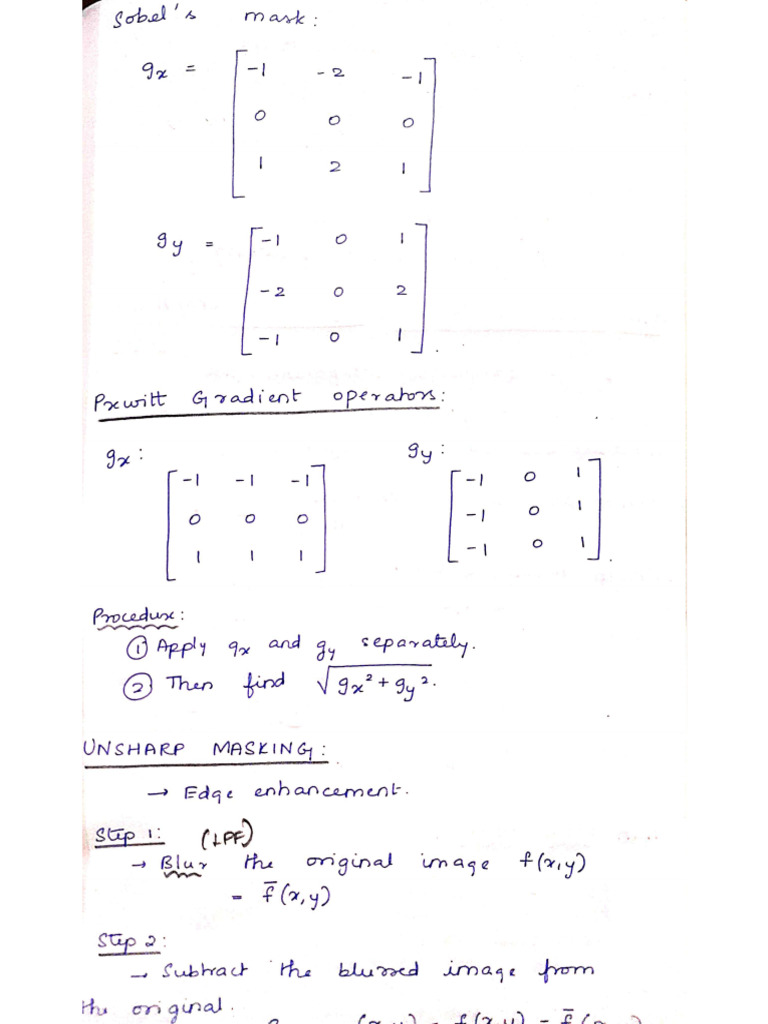 Sobel's mask:
gx = [ -1 -2 -1
0 0 0
1 2 1 ]
gy = [ -1 0 1
-2 0 2
-1 0 1 ].
Prewitt Gradient operators:
gx: gy:
[ -1 -1 -1 [ -1 0 1
0 0 0 -1 0 1
1 1 1 ] -1 0 1 ].
Procedure:
① Apply gx and gy separately.
② Then find √gx² + gy².
UNSHARP MASKING:
→ Edge enhancement.
Step 1: (LPF)
→ Blur the original image f(x,y)
= f̄(x,y)
Step 2:
→ Subtract the blurred image from
the original.
(x,y) = f(x,y) - f̄(